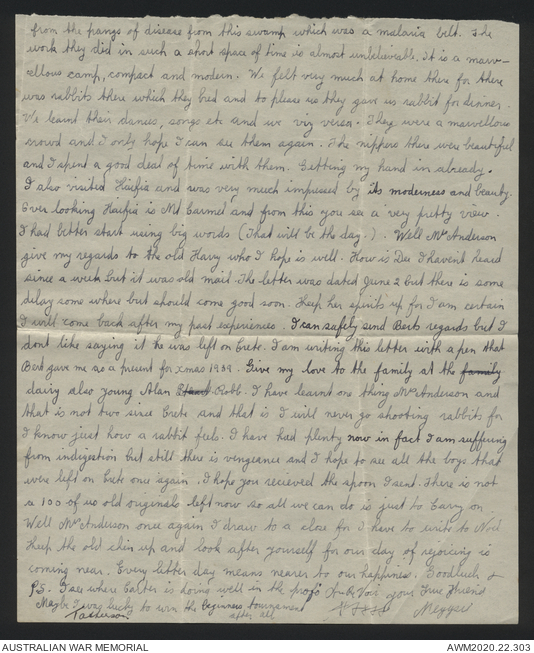 from the pangs of disease from this swamp which was a malaria belt. The
work they did in such a short space of time is almost unbelievable. It is a marv-
ellous camp, compact and modern. We felt very much at home there for there
was rabbits there which they bred and to please us they gave us rabbit for dinner.
We learnt their dances, songs etc and we viz versa. They were a marvellous
crowd and I only hope I can see them again. The nippers there were beautiful
and I spent a good deal of time with them. Getting my hand in already.
I also visited Haifia and was very much impressed by its moderness and beauty.
Over looking Haifia is Mt. Carmel and from this you see a very pretty view.
I had better start using big words (That will be the day.). Well Mrs Anderson
give my regards to the old Harvy who I hope is well. How is Dee I havent heard
since a week but it was old mail. The letter was dated June 2 but there is some
delay some where but should come good soon. Keep her spirits up for I am certain
I will come back after my past experiences. I can safely send Berts regards but I
dont like saying it he was left on Crete. I am writing this letter with a pen that
Bert gave me as a present for xmas 1939. Give my love to the family at the family
dairy also young Alan Robb. I have learnt one thing Mrs Anderson and
that is not two since Crete and that is I will never go shooting rabbits for
I know just how a rabbit feels. I have had plenty now in fact I am suffering
from indigestion but still there is vengeance and I hope to see all the boys that
were left on Crete once again. I hope you recieved the spoon I sent. There is not
a 100 of us old originals left now so all we can do is just to Carry on.
Well Mrs Anderson once again I draw to a close for I have to write to Noel
Keep the old chin up and look after yourself for our day of rejoicing is
coming near. Every letter day means nearer to our happiness. Goodluck &
P.S. I see where Carter is doing well in the prof's your True Friend
Maybe I was lucky to win the beginners tournament
Tatterson after all
AUSTRALIAN WAR MEMORIAL
AWM2020.22.303